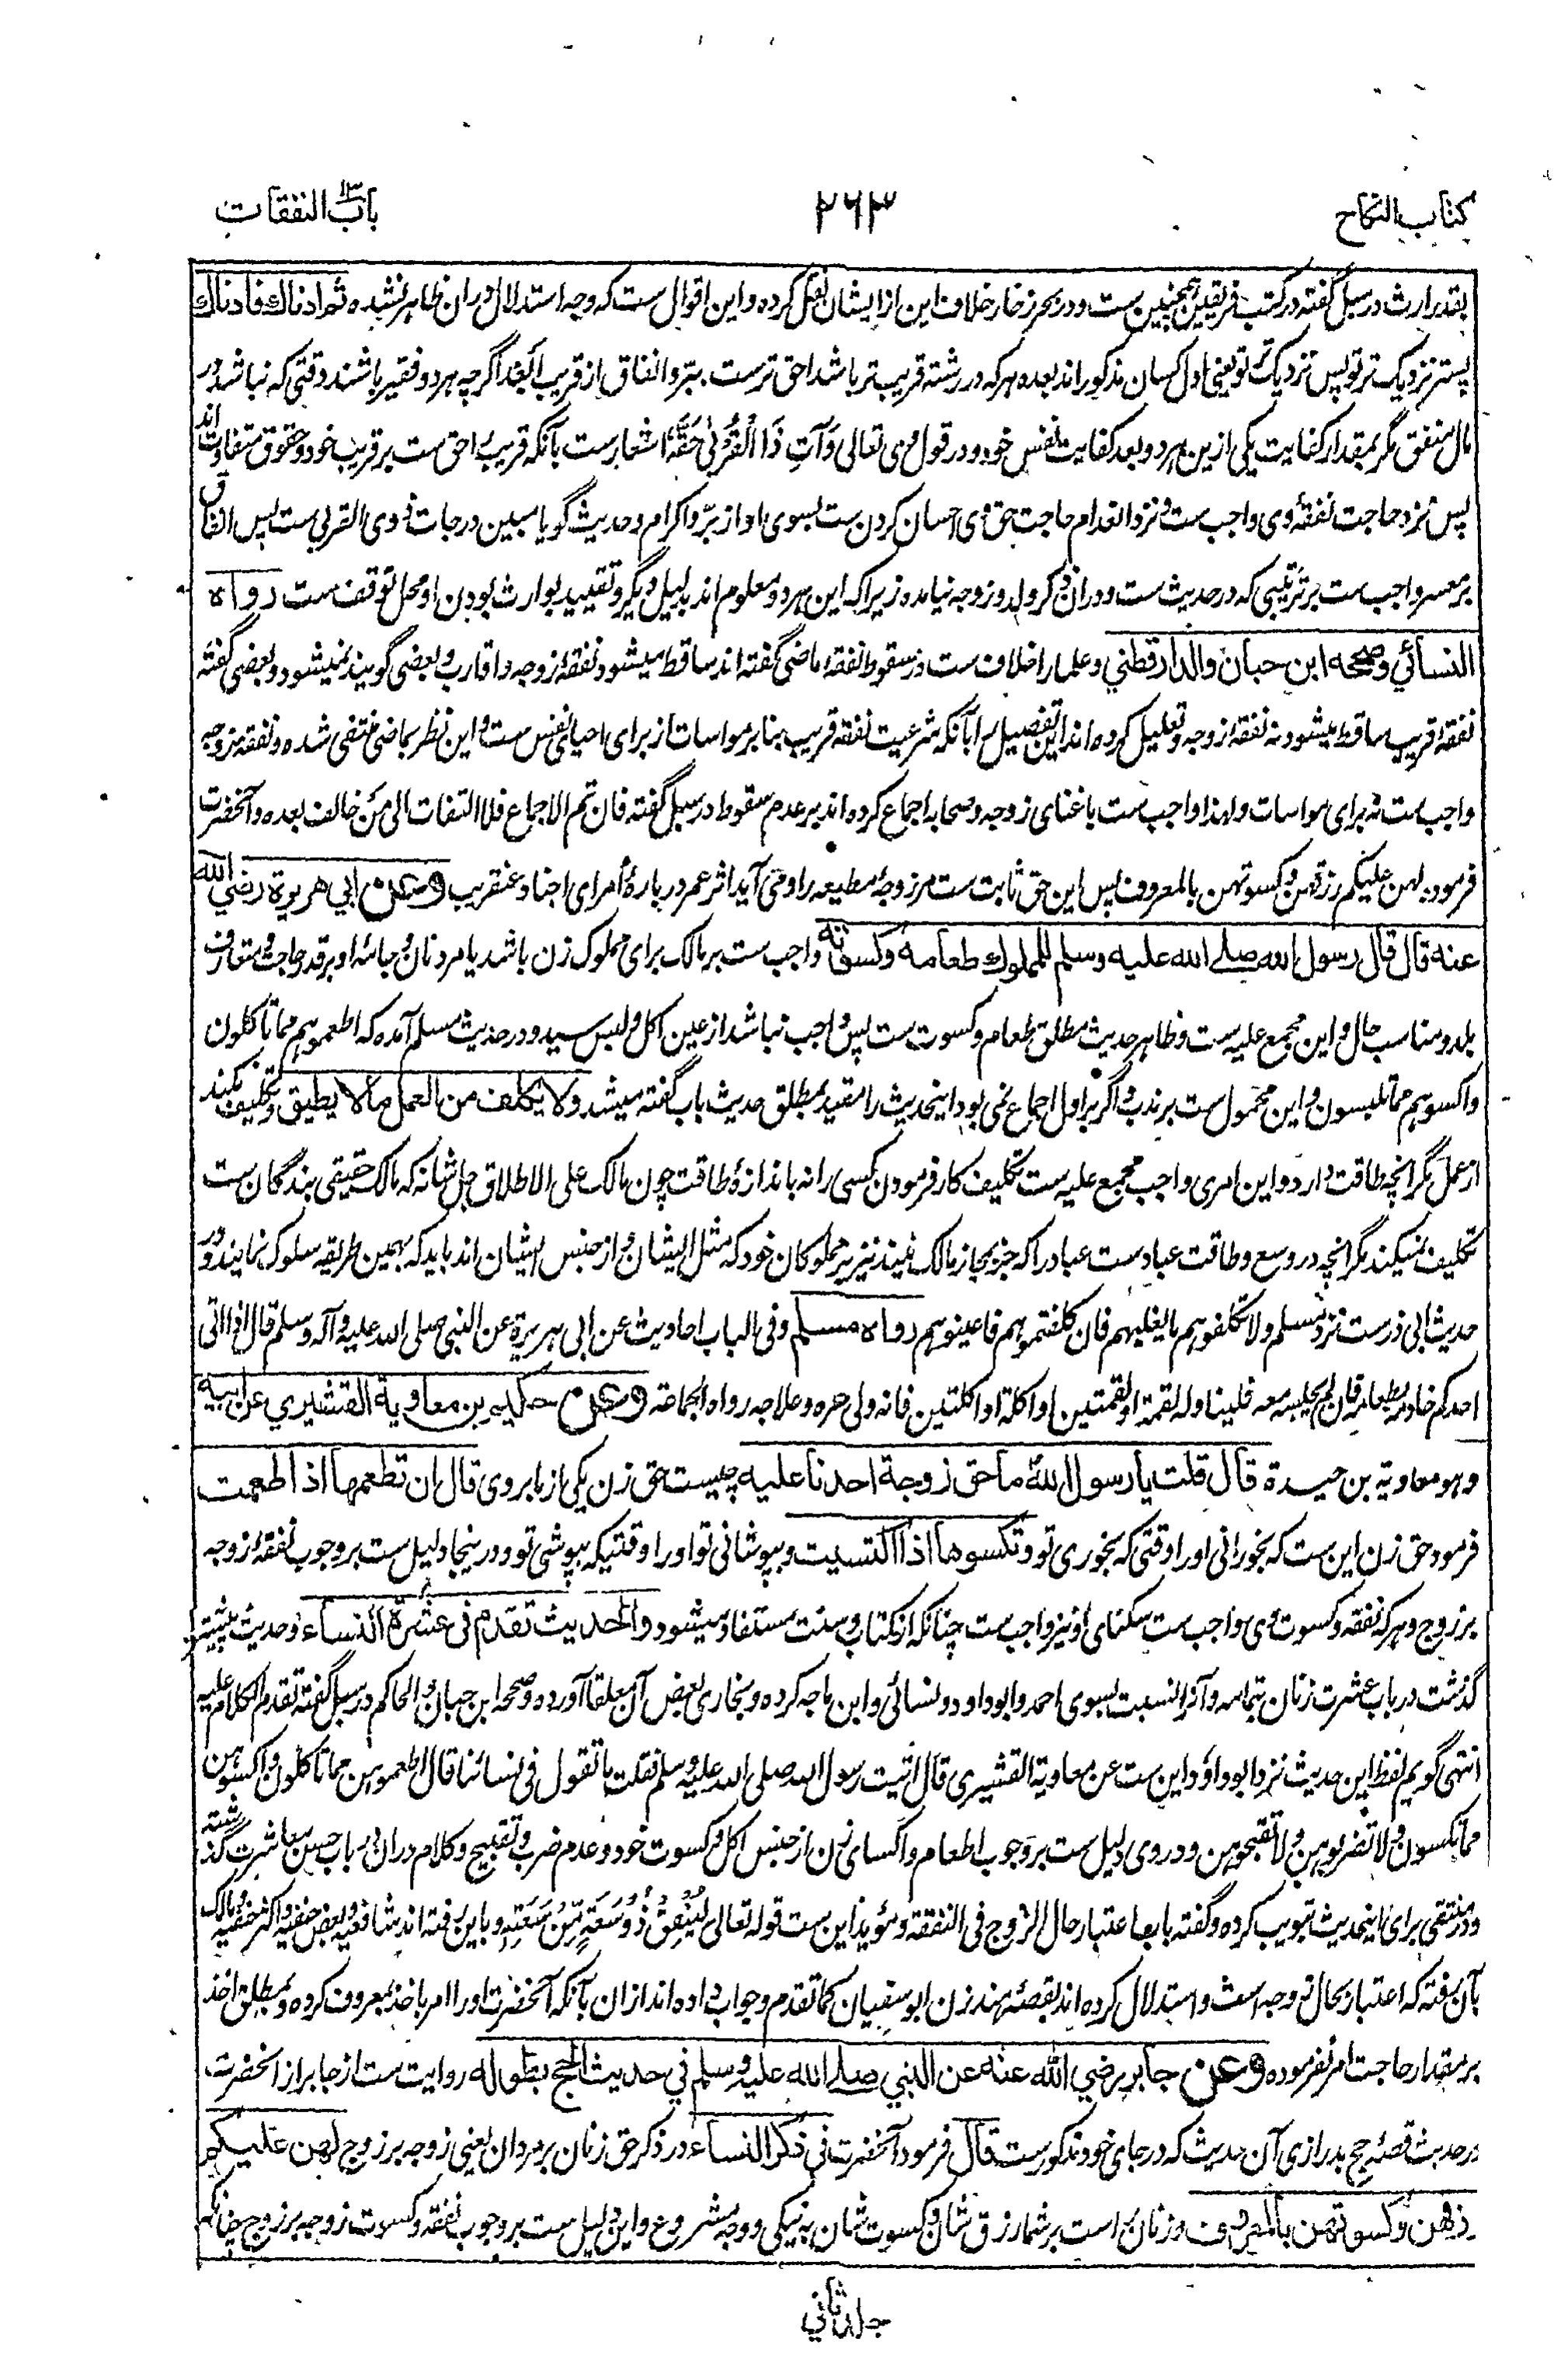 كتاب النكاح
٢٦٣
باب النفقات
بقدر ارث در سبل گفته در کتب فریقین همچنین ست و در بحر زخار خلاف این از ایشان نقل کرده و این اقوال ست که وجه استدلال دران ظاهر نشده ثم ادناك فادناك
پستر نزدیک تر تو پس نزدیک تر تو یعنی اول کسان مذکور اند بعده هر که در رشته قریب تر باشد احق ترست ببر و انفاق از قریب ابعد اگرچه هر دو فقیر باشند وقتی که نباشد در
مال منفق مگر بمقدار کفایت یکی ازین هر دو بعد کفایت نفس خود و در قول وی تعالی وَآتِ ذَا الْقُرْبىٰ حَقَّهُ اشعارست بآنکه قریب احق ست بر قریب خود و حقوق متفاوت اند
پس نزد حاجت نفقهٔ وی واجب ست و نزد انعدام حاجت حق وی احسان کردن ست بسوی او از بر و اکرام و حدیث گویا مبین درجات ذوی القربی ست پس انفاق
بر معسر واجب ست بر ترتیبی که در حدیث ست و دران ذکر ولد و زوجه نیامده زیرا که این هر دو معلوم اند بدلیل دیگر و تقیید بوارث بودن او محل توقف ست رواه
النسائي وصححه ابن حبان والدارقطني و علما را خلاف ست در سقوط نفقهٔ ماضی گفته اند ساقط میشود نفقهٔ زوجه و اقارب و بعضی گویند نمیشود و بعضی گفته
نفقهٔ قریب ساقط میشود نه نفقهٔ زوجه و تعلیل کرده اند این تفصیل را بآنکه شرعیت نفقهٔ قریب بنا بر مواسات از برای احیای نفس ست و این نظر بماضی منتفی شده و نفقهٔ زوجه
واجب ست نه برای مواسات ولهذا واجب ست با غنای زوجه و صحابه اجماع کرده اند بر عدم سقوط در سبل گفته فان تم الاجماع فلا التفات الی من خالف بعده و آنحضرت
فرموده لهن علیکم رزقهن و کسوتهن بالمعروف پس این حق ثابت ست مر زوجهٔ مطیعه را و می آید اثر عمر در بارهٔ امرای اجناد عنقریب وعن ابي هريرة رضي الله
عنه قال قال رسول الله صلى الله عليه وسلم للمملوك طعامه وكسوته واجب ست بر مالک برای مملوک زن باشد یا مرد نان و جامهٔ او بر قدر حاجت و متعارف
بلد و مناسب حال و این مجمع علیه ست و ظاهر حدیث مطلق طعام و کسوت ست پس واجب نباشد از عین اکل و لبس سید و در حدیث مسلم آمده که اطعموهم مما تاکلون
واکسوهم مما تلبسون و این محمول ست بر ندب و اگر بر اول اجماع نمی بود اینحدیث را مقید مطلق حدیث باب گفته میشد ولا يكلف من العمل ما لا يطيق و تکلیف نکند
از عمل مگر آنچه طاقت دارد و این امری واجب مجمع علیه ست تکلیف کار فرمودن کسی را نه باندازهٔ طاقت چون مالک علی الاطلاق جل شانه که مالک حقیقی بندگان ست
تکلیف نمیکند مگر آنچه در وسع و طاقت عبادست عباد را که جز بمجاز مالک نیند نیز بر مملوکان خود که مثل ایشان و از جنس ایشان اند باید که بهمین طریقه سلوک نمایند و در
حدیث ابی ذرست نزد مسلم ولا تکلفوهم ما یغلبهم فان کلفتموهم فاعینوهم رواه مسلم وفی الباب احادیث عن ابی هریرة عن النبی صلی الله علیه وآله وسلم قال اذا اتی
احدکم خادمه بطعامه فان لم یجلسه معه فلیناوله لقمة او لقمتین او اکلة او اکلتین فانه ولی حره وعلاجه رواه الجماعة وعن حكيم بن معاوية القشيري عن ابيه
وهو معاویة بن حیدة قال قلت يا رسول الله ما حق زوجة احدنا عليه چیست حق زن یکی از ما بر وی قال ان تطعمها اذا طعمت
فرمود حق زن این ست که بخورانی او را وقتی که بخوری تو وتكسوها اذا اكتسيت و بپوشانی تو او را وقتیکه بپوشی تو و درینجا دلیل ست بر وجوب نفقهٔ زوجه
بر زوج و هر که نفقه و کسوت وی واجب ست سکنای او نیز واجب ست چنانکه از کتاب و سنت مستفاد میشود والحديث تقدم في عشرة النساء و حدیث پیشتر
گذشت در باب عشرت زنان بتمامه و آنرا نسبت بسوی احمد و ابو داود و نسائی و ابن ماجه کرده و بخاری بعض آن معلقا آورده و صححه ابن حبان والحاکم در سبل گفته تقدم الکلام علیه
انتهی گویم لفظ این حدیث نزد ابو داود این ست عن معاویة القشیری قال اتیت رسول الله صلی الله علیه وسلم فقلت ما تقول فی نسائنا قال اطعموهن مما تاکلون واکسوهن
مما تکسون ولا تضربوهن ولا تقبحوهن و در وی دلیل ست بر وجوب اطعام و اکسای زن از جنس اکل و کسوت خود و عدم ضرب و تقبیح و کلام دران در باب حسن معاشرت گذشته
و در منتقی برای اینحدیث تبویب کرده و گفته باب اعتبار حال الزوج فی النفقة و مؤید این ست قوله تعالی لِيُنْفِقْ ذُو سَعَةٍ مِّنْ سَعَتِهِ و باین رفته اند شافعیه و بعض حنفیه و اکثر حنفیه و مالک
بآن رفته که اعتبار بحال زوجه است و استدلال کرده اند بقصهٔ هند زن ابو سفیان کما تقدم و جواب داده اند ازان بآنکه آنحضرت او را امر باخذ بمعروف کرده و بمطلق اخذ
بر مقدار حاجت امر نفرموده وعن جابر رضي الله عنه عن النبي صلى الله عليه وسلم في حديث الحج بطوله روایت ست از جابر از آنحضرت
در حدیث قصهٔ حج بدرازی آن حدیث که در جای خود مذکورست قال فرمود آنحضرت في ذكر النساء در ذکر حق زنان بر مردان یعنی زوجه بر زوج لهن عليكم
رزقهن وكسوتهن بالمعروف و زنان راست بر شما رزق شان و کسوت شان به نیکی و وجه مشروع و این دلیل ست بر وجوب نفقه و کسوت زوجه بر زوج چنانکه
جلد ثاني